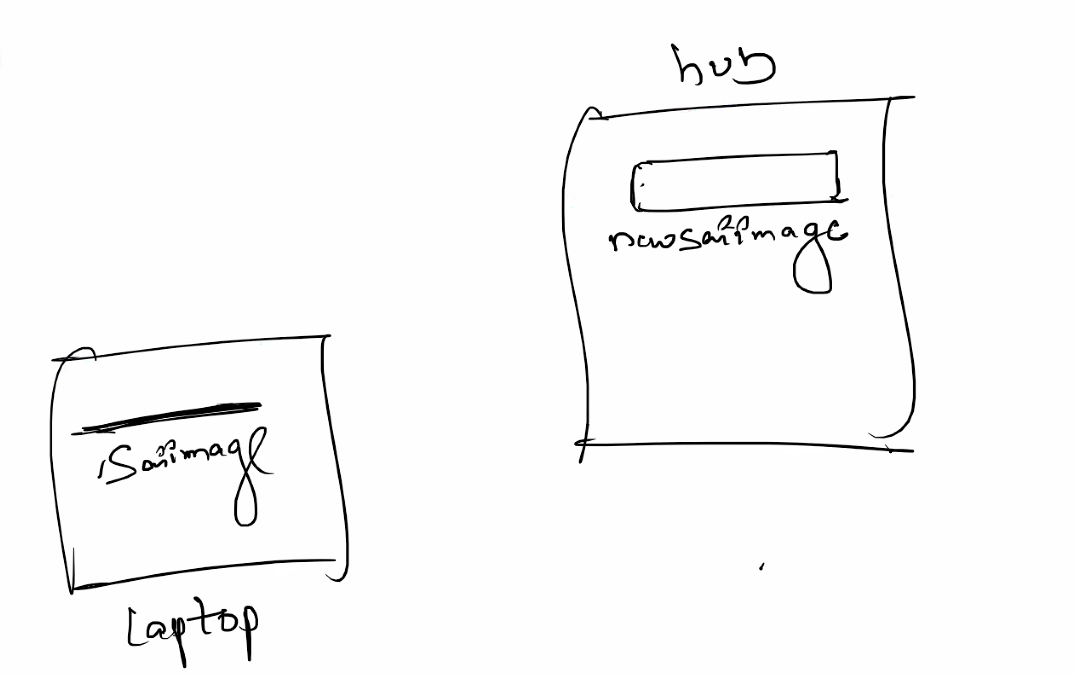 hub
newsaiimage
Saiimage
Laptop